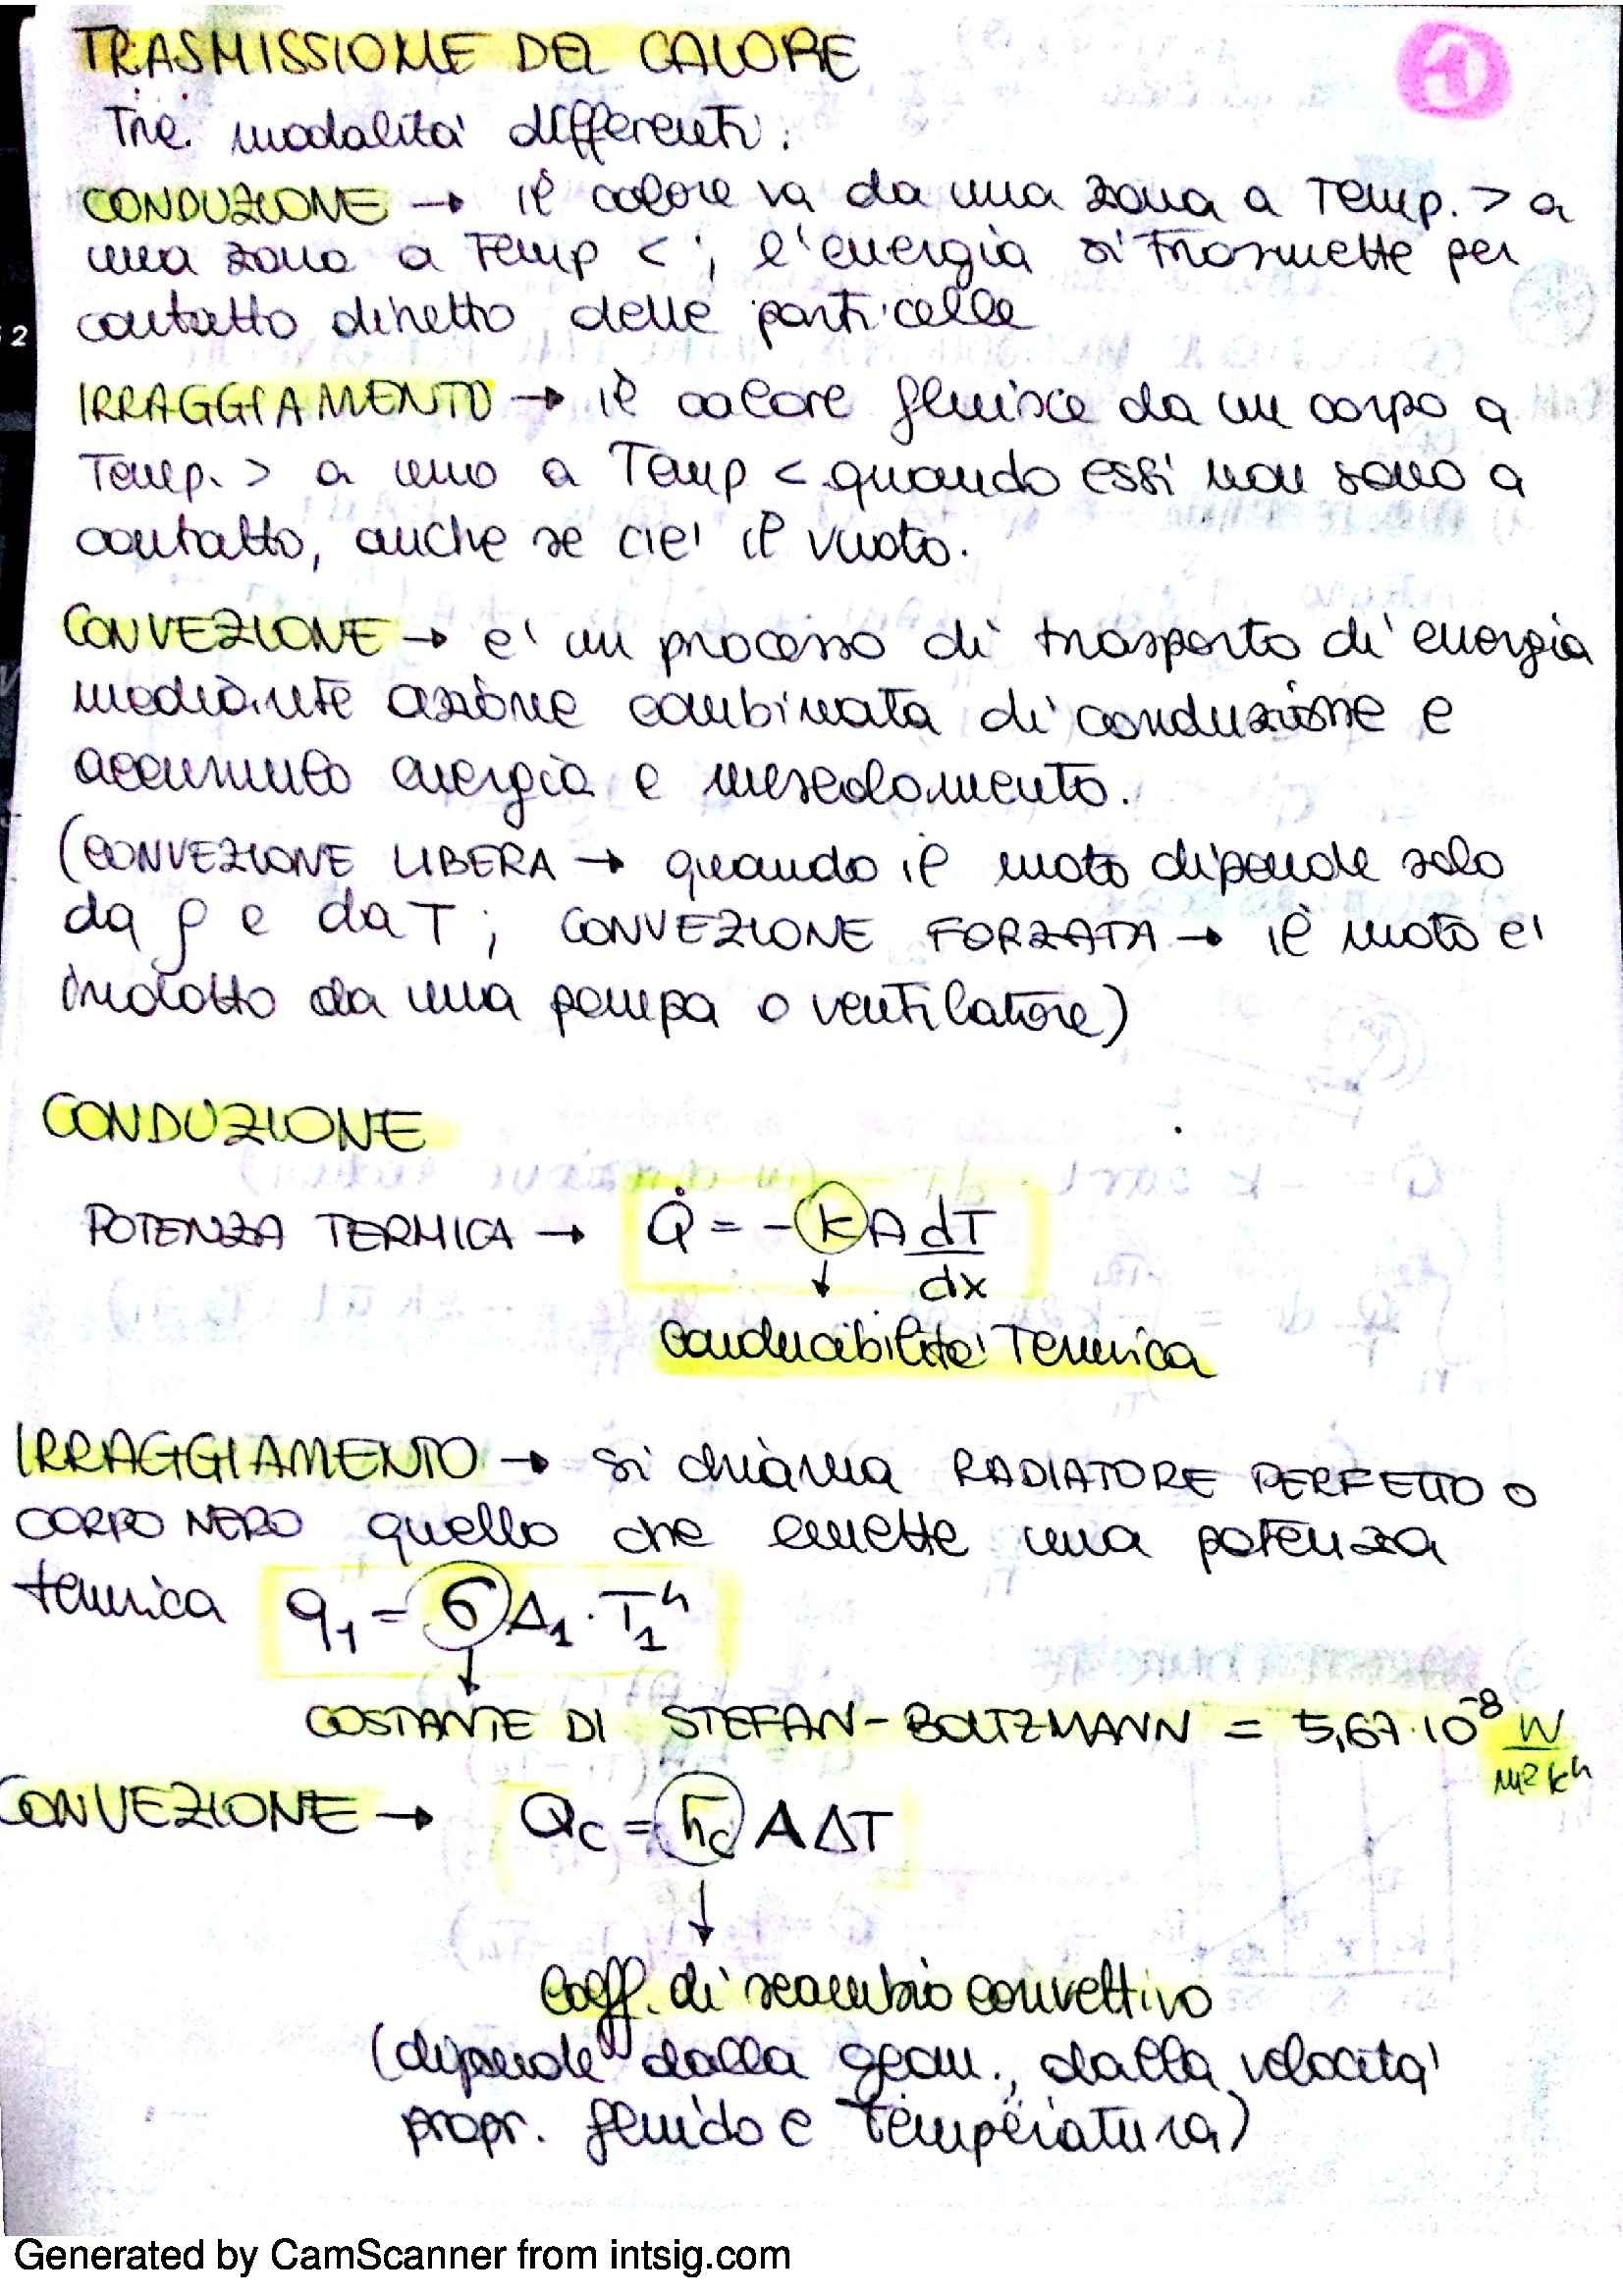 TRASMISSIONE DEL CALORE
1
Tre modalità differenti:
CONDUZIONE → il calore va da una zona a Temp. > a
una zona a Temp < ; l'energia si trasmette per
contatto diretto delle particelle
2
IRRAGGIAMENTO → il calore fluisce da un corpo a
Temp. > a uno a Temp < quando essi non sono a
contatto, anche se c'e' il vuoto.
CONVEZIONE → e' un processo di trasporto di energia
mediante azione combinata di conduzione e
accumulo energia e mescolamento.
(CONVEZIONE LIBERA → quando il moto dipende solo
da ρ e da T ; CONVEZIONE FORZATA → il moto e'
indotto da una pompa o ventilatore)
CONDUZIONE
POTENZA TERMICA → Q̇ = - k A dT/dx
↓
conducibilita' Termica
IRRAGGIAMENTO → si chiama RADIATORE PERFETTO o
CORPO NERO quello che emette una potenza
termica q₁ = σ A₁ · T₁⁴
↓
COSTANTE DI STEFAN-BOLTZMANN = 5,67·10⁻⁸ W/m²K⁴
CONVEZIONE → Qc = h̄c A ΔT
↓
Coeff. di scambio convettivo
(dipende dalla geom., dalla velocita'
propr. fluido e Temperatura)
Generated by CamScanner from intsig.com